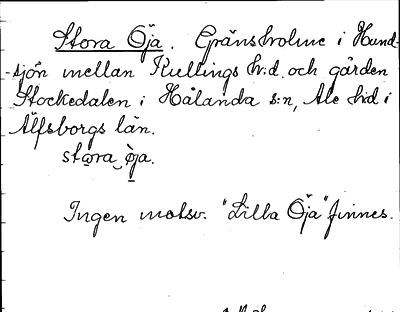 Stora Öja. Gränsholme i Hund-
-sjön mellan Kullings h:d. och gården
Stockedalen i Hålanda s:n, Ale h:d i
Älfsborgs län.
stora öja.
Ingen motsv. "Lilla Öja" finnes.